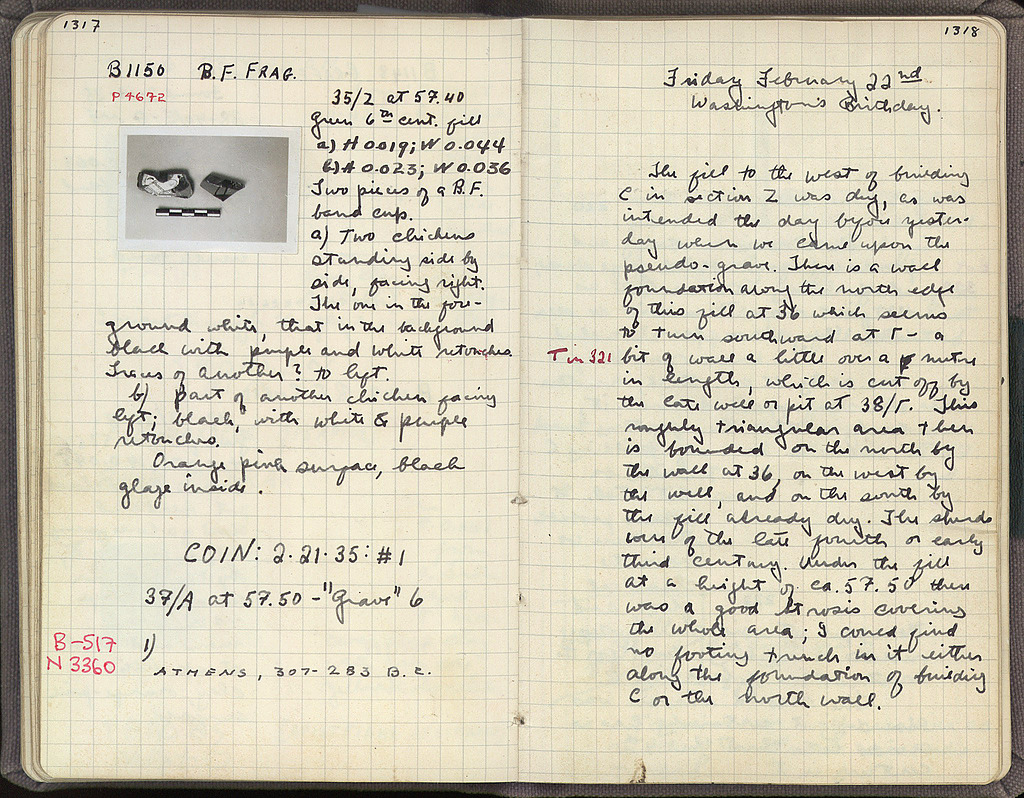 1317
B1150 B.F. FRAG.
P 4672
35/Z at 57.40
Green 6th cent. fill
a) H 0.019; W 0.044
b) H 0.023; W 0.036
Two pieces of a B.F.
band cup.
a) Two chickens
standing side by
side, facing right.
The one in the fore-
ground white, that in the background
black with purple and white retouches.
Traces of another? to left.
b) Part of another chicken facing
left; black, with white & purple
retouches.
Orange pink surface, black
glaze inside.
COIN: 2·21·35: #1
37/A at 57.50 - "Grave" 6
B-517
N 3360
1)
ATHENS, 307-283 B.C.
1318
Friday February 22nd
Washington's Birthday.
The fill to the west of building
C in section Z was dug, as was
intended the day before yester-
day when we came upon the
pseudo-grave. There is a wall
foundation along the north edge
of this fill at 36 which seems
to turn southward at Γ - a
T in 321
bit of wall a little over a metre
in length, which is cut off by
the late well or pit at 38/Γ. This
roughly triangular area then
is bounded on the north by
the wall at 36, on the west by
the well, and on the south by
the fill already dug. The sherds
were of the late fourth or early
third century. Under the fill
at a height of ca. 57.50 there
was a good strosis covering
the whole area; I could find
no footing trench in it either
along the foundation of building
C or the north wall.